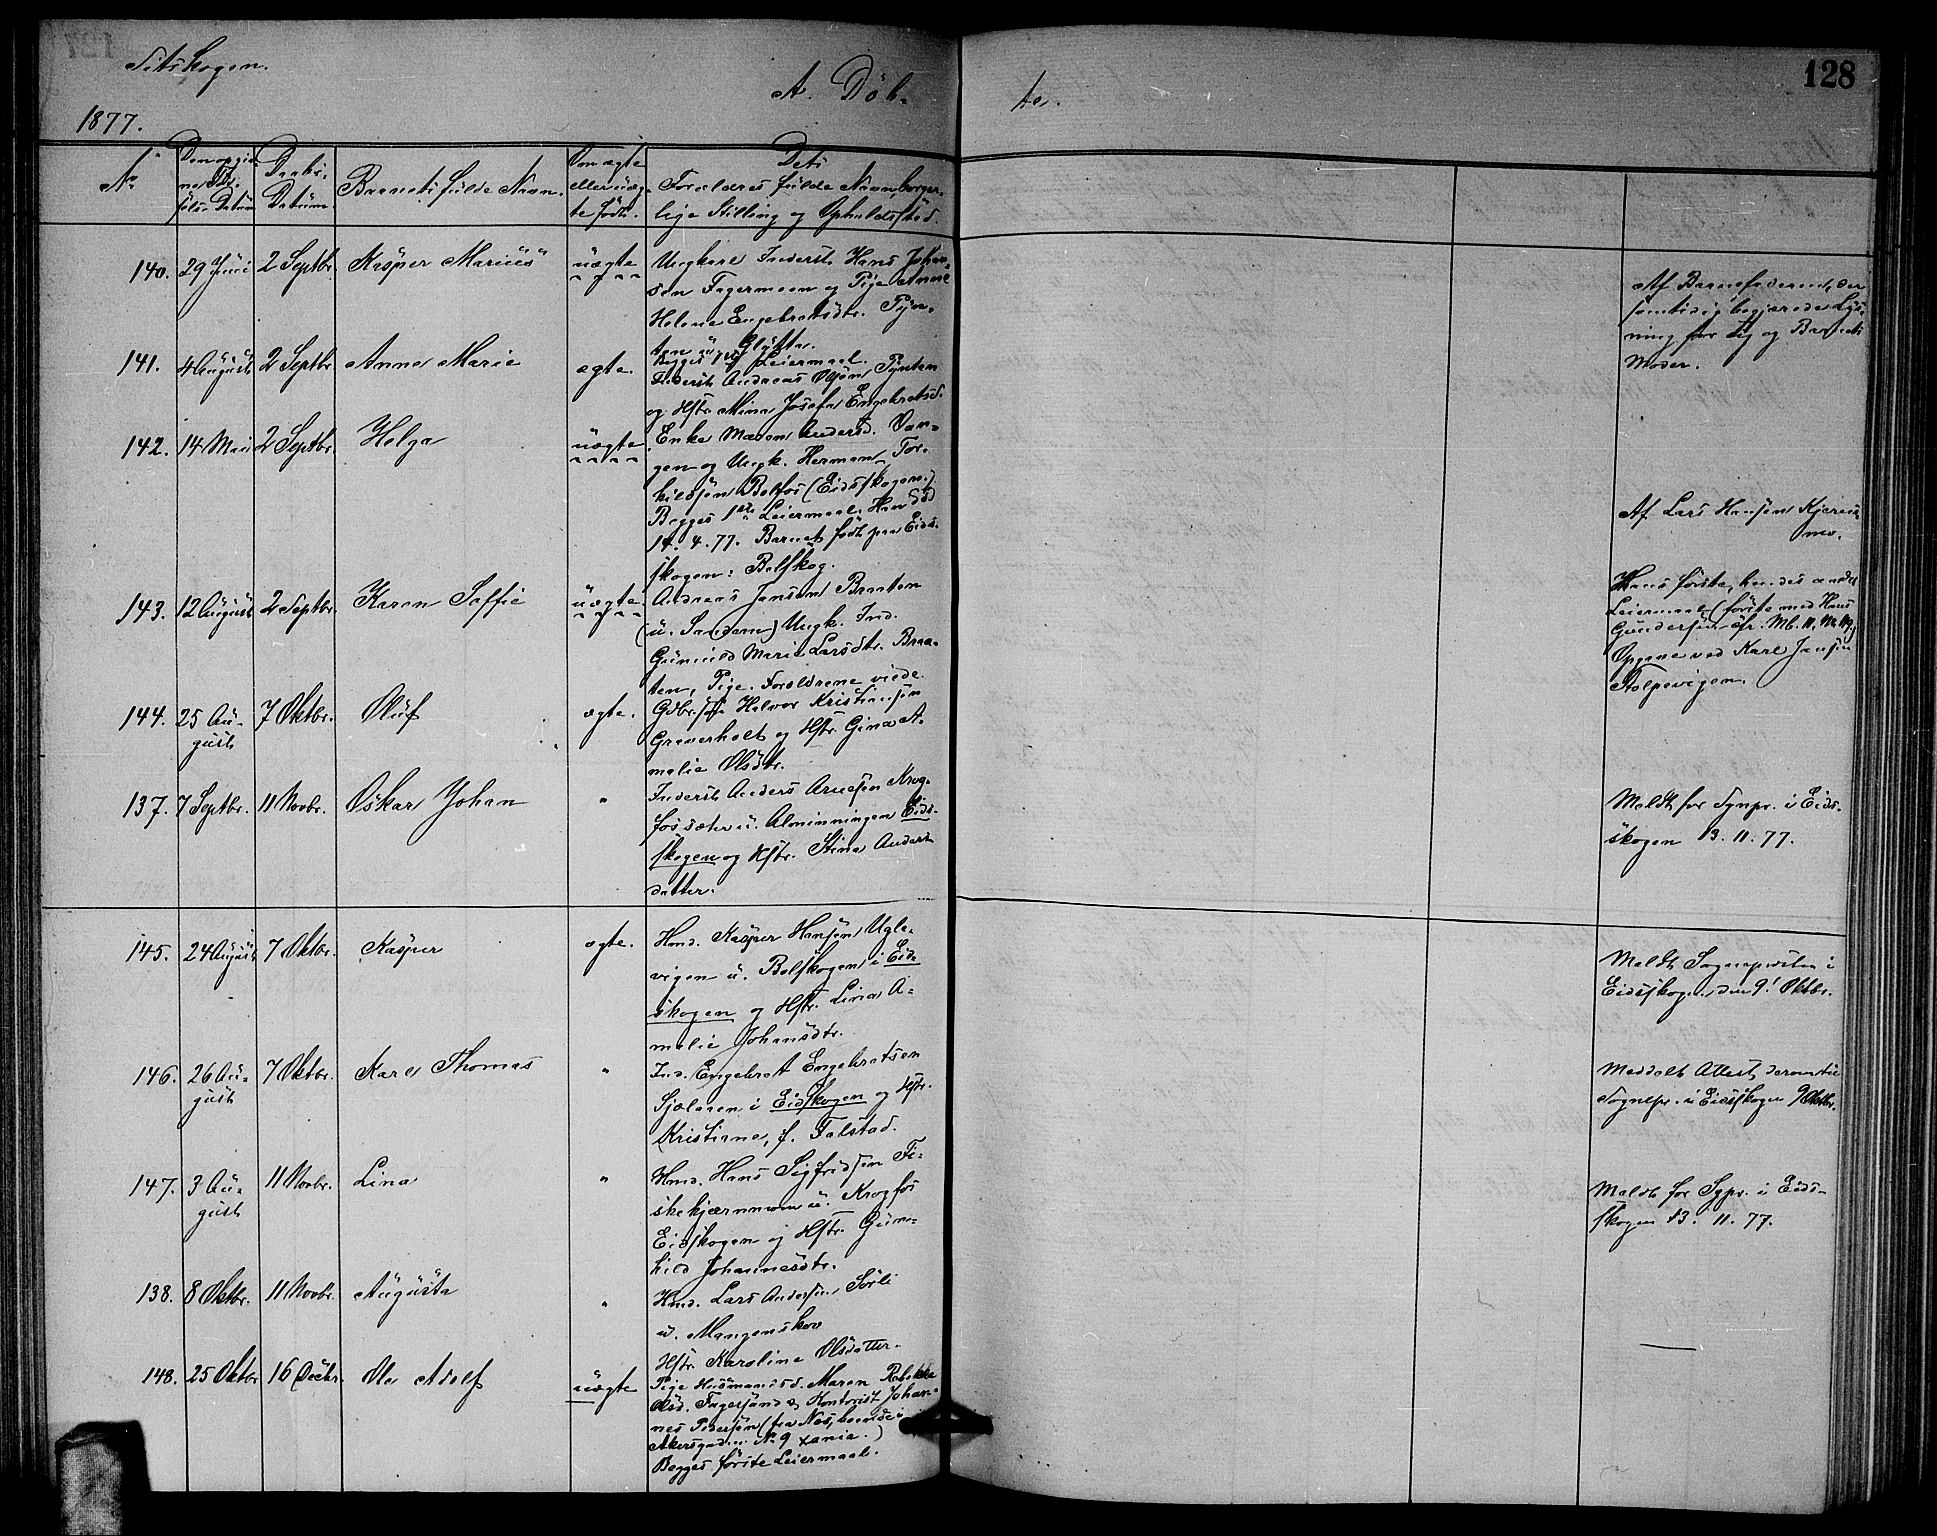 Setskogen.
A. Døb-
te.
128
1877.
No
Den opgiv-
ne Fød-
sels-Datum
Daabs-
Datum.
Barnets fulde Navn.
Om ægte
eller uæg-
te født.
Dets
Forældres fulde Navn, borger-
lige Stilling og Opholdssted
140. 29 Juni 2 Septbr. Kasper Marius uægte
Ungkarl Inderst Hans Johan-
sen Fagermoen og Pige Anne
Helene Engebretsdtr. Tyn-
ten u. Slyttr.
Begges 1ste Leiermaal.
Af Barnefaderen, der
samtidig begjærede Lys-
ning for sig og Barnets
Moder.
141. 4 August 2 Septbr. Anna Marie ægte.
Inderst Andreas Olsen Tynten
og Hstr. Mina Josefa Engebretsd.
142. 14 Mai 2 Septbr. Helga uægte
Enke Maren Andersd. Van-
gen og Ungk. Herman Tor-
kildsen Belfos (Eidsskogen.)
Begges 1ste Leiermaal. Han død
14. 4. 77. Barnet født paa Eids-
skogen: Belskog.
Af Lars Hansen Kjerns-
mo.
143. 12 August 2 Septbr. Karen Saffie uægte
Andreas Jansen Braaten
(u. Sanden) Ungk. Ind.
Gunnild Marie Larsdtr. Braa-
ten, Pige. Forældrene viede.
Hans første, hendes andet
Leiermaal (første med Hans
Gundersen cfr. Mb. 11. No 119)
Opgave ved Karl Jansen
Stolpevigen.
144. 25 Au-
gust 7 Oktbr. Oluf ægte.
Gdbr.s. Halvor Kristiansen
Graverholt og Hstr. Gina A-
malie Olsdtr.
137. 7 Septbr. 11 Novbr. Oskar Johan "
Inderst Anders Arnesen Krog-
fossæter u. Alminningen Eids-
skogen og Hstr. Stina Anders-
datter.
Meldt for Sgnpr. i Eids-
skogen 13. 11. 77.
145. 24 August 7 Oktbr. Kasper ægte.
Hmd. Kasper Hansen Ugle-
vigen u. Belskogen i Eid-
skogen og Hstr. Lina A-
malie Johansdtr.
Meldt Sognepresten i
Eidsskogen den 9' Oktbr.
146. 26 Au-
gust 7 Oktbr. Karl Thomas "
Ind. Engebret Engebretsen
Sjølaaen i Eidskogen og Hstr.
Kristiane, f. Falstad.
Meddelt Attest derom til
Sognepr. i Eidsskogen 9 Oktbr.
147. 3 Au-
gust 11 Novbr. Lina "
Hmd. Hans Sigfridsen Fi-
skekjærnmoen u. Krogfos
Eidskogen og Hstr. Gun-
hild Johannesdtr.
Meldt for Sgpr. i Eids-
skogen 13. 11. 77.
138. 8 Oktbr. 11 Novbr. Augusta "
Hmd. Lars Andersen Sørli
u. Mangenskov
Hstr. Karoline Olsdatter.
148. 25 Oktbr 16 Decbr. Ole Adolf uægte
Pige Husmandsd. Maren Rebekka
Olsd. Fagersand & Kontorist Johan-
nes Pedersen (fra Næs, boende i
Akersgaden No 9 Xania.)
Begges første Leiermaal.